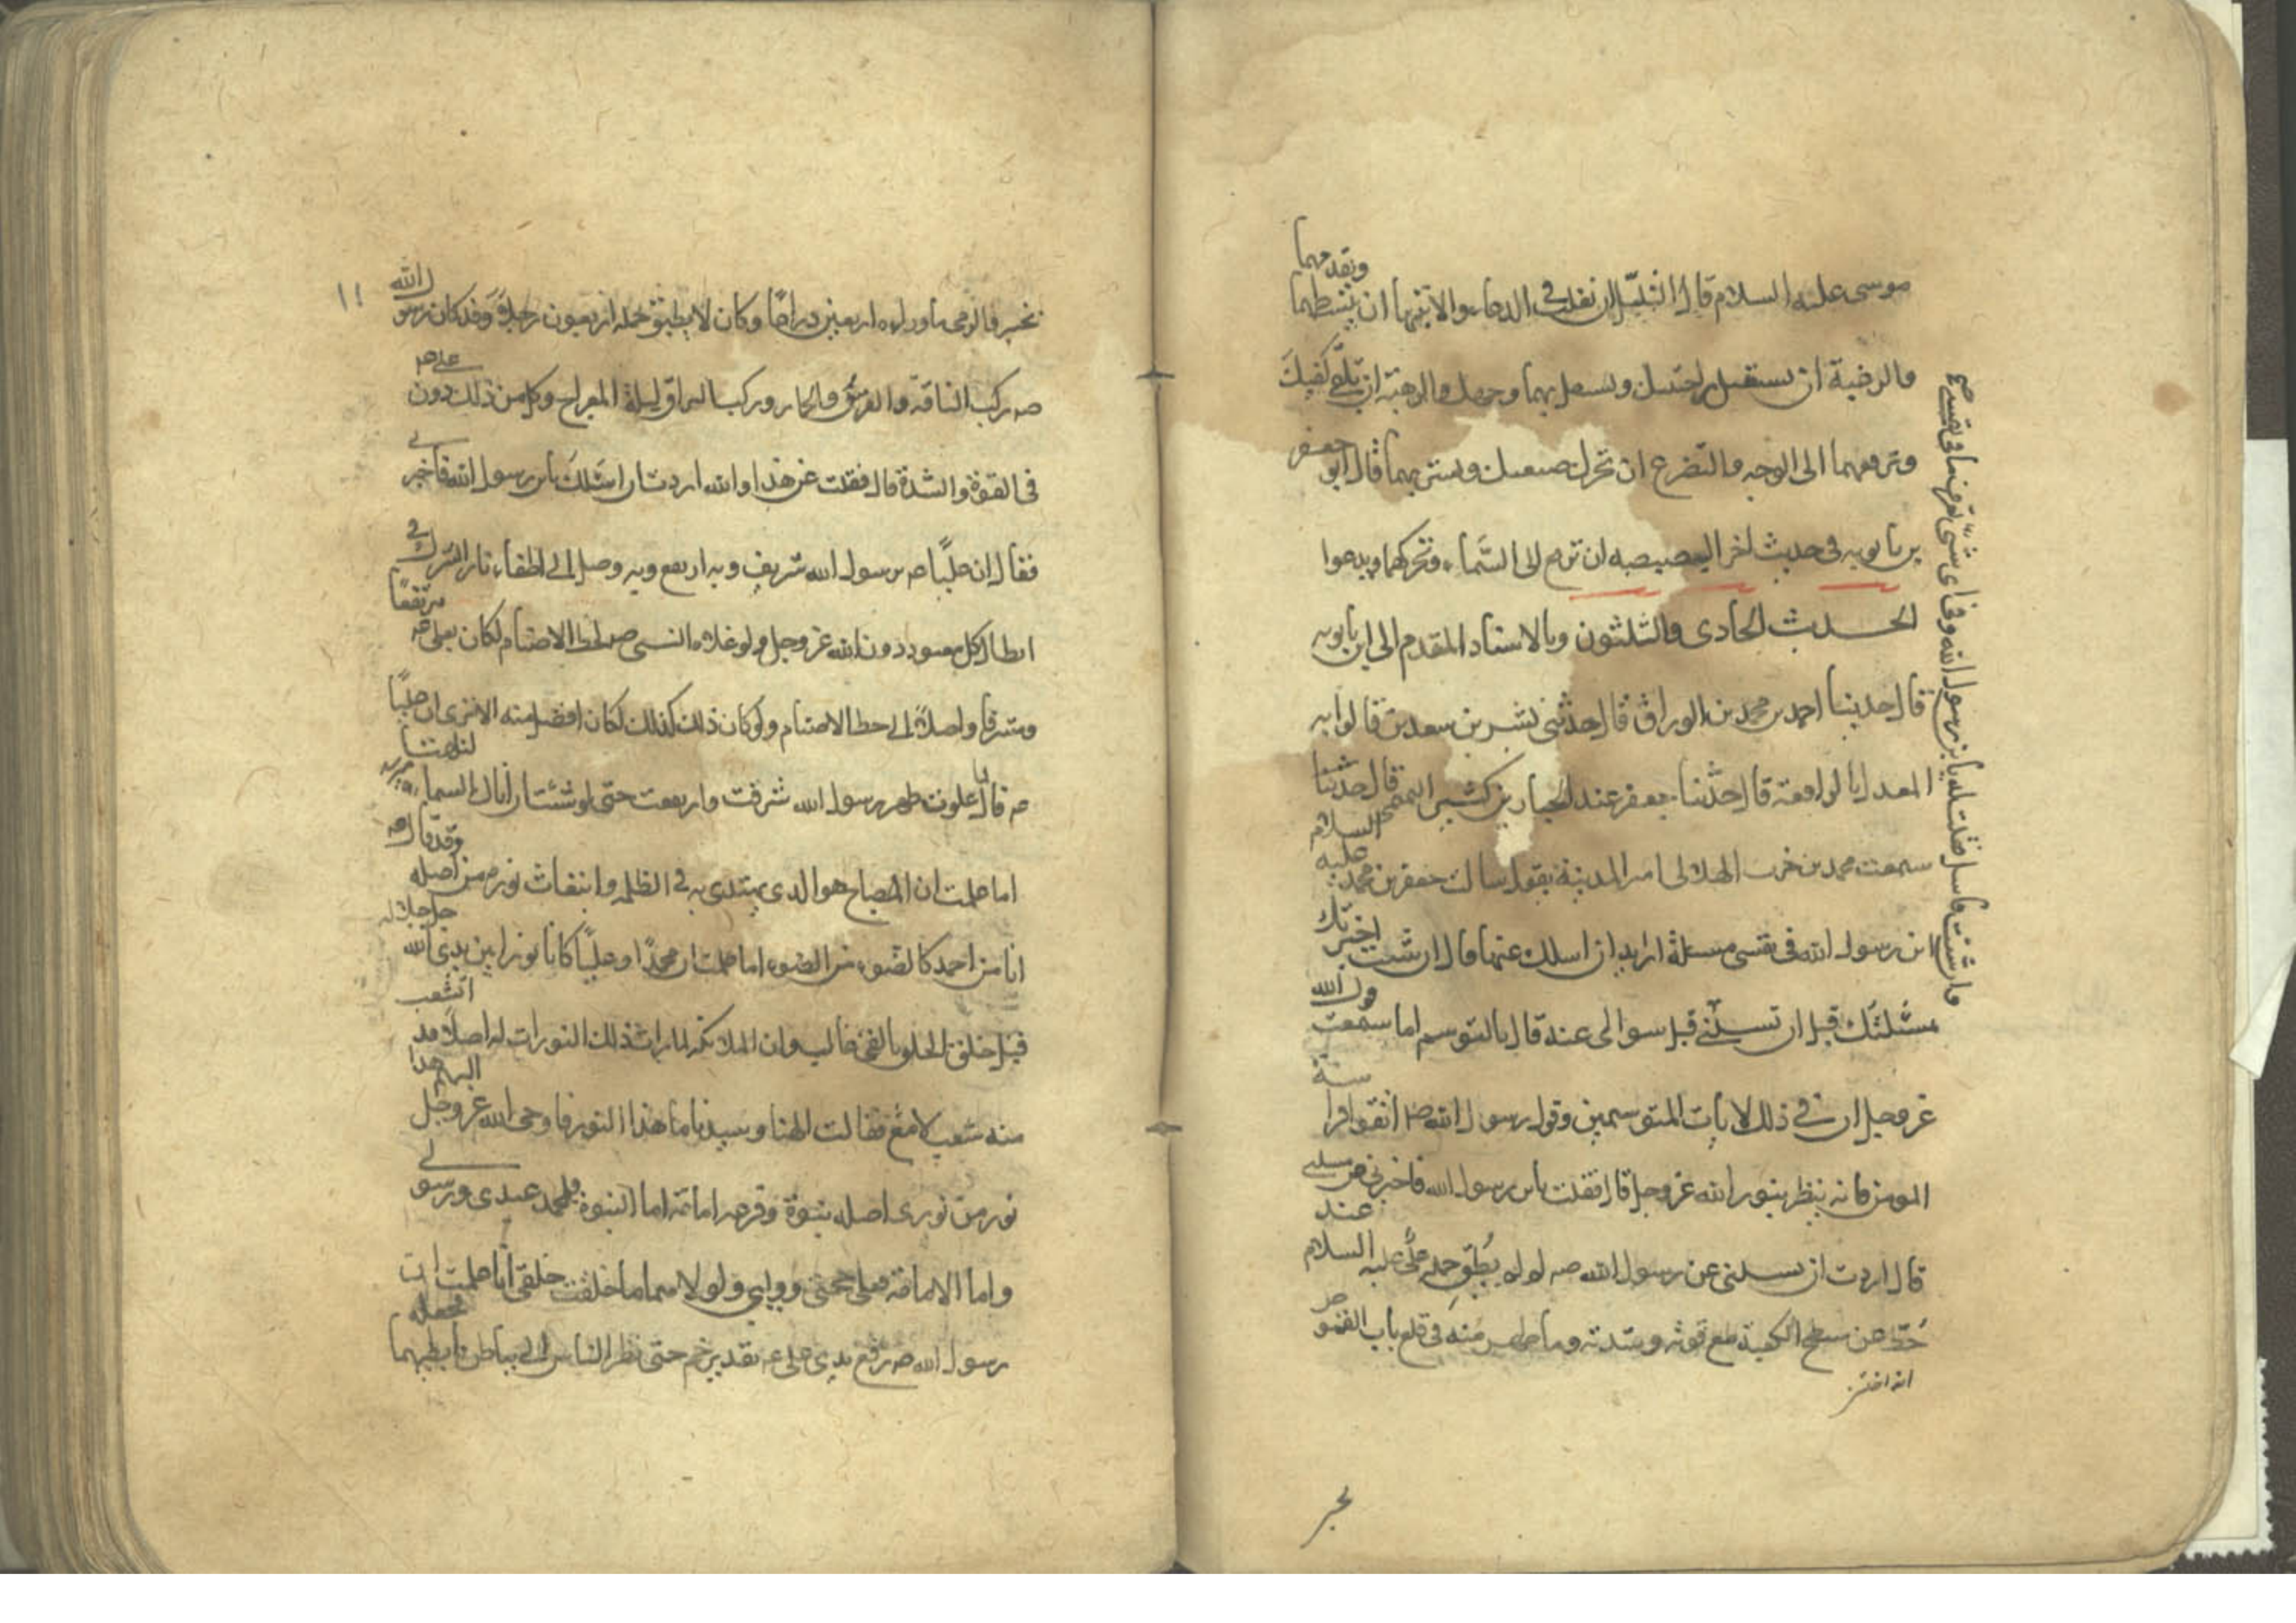 موسى عليه السلام قال التبتل ان تقلب في الدعاء والابتهال ان تبسطهما وتقدمهما
والرغبة ان تستقبل براحتيك وتستقبل بهما وجهك والرهبة ان تلقى كفيك
وترفعهما الى الوجه والتضرع ان تحرك اصبعيك وتشير بهما قال ابو جعفر
بن بابويه في حديث اخر البصبصه ان ترفع الى السماء وتحركهما ويدعوا
الحديث الحادى والثلثون وبالاسناد المقدم الى ابن بابويه
قال حدثنا احمد بن محمد بن الوراق قال حدثنى بشر بن سعد بن قالوا به
المعدل بالرافقة قال حدثنا عبد الجبار بن كثير التميمى قال حدثنا
سمعت محمد بن حرب الهلالى امير المدينة يقول سالت جعفر بن محمد عليه السلام
ابن رسول الله في نفسى مسئلة اريد ان اسلك عنها قال ان شئت اخبرتك
بمسئلتك قبل ان تسئلنى قبل سوالى عنه قال بالتوسم اما سمعت قول الله
عز وجل ان في ذلك لايات للمتوسمين وقول رسول الله ص اتقوا فراسة
المومن فانه ينظر بنور الله عز وجل قال فقلت يابن رسول الله فاخبرنى عن مسئلتى
قال اردت ان تسئلنى عن رسول الله صم لم لم يطق حمله على عليه السلام عند
حط عن سطح الكعبة مع قوته وشدته وما ظهر منه في قلع باب القموص
وان شئت فاسل فقلت له يابن رسول الله وفى اى شئ تعرف ما فى نفسى
بخيبر
بخيبر فالرمى بها وراءه اربعين ذراعا وكان لا يطيق حمله اربعون رجلا وقد كان رسول الله
صم يركب الناقة والفرس والحمار وركب البراق ليلة المعراج وكل من ذلك دون على عم
فى القوة والشدة قال فقلت عن هذا والله اردت ان اسئلك يابن رسول الله فاخبرنى
فقال ان عليا عم برسول الله شريف وبه ارتفع وبه وصل الى اطفاء نار الشرك و
ابطال كل معبود دون الله عز وجل ولو علاه النبى صم لحط الاصنام لكان بعلى عم مرتفعا
ومتشرفا واصلا الى حط الاصنام ولو كان ذلك كذلك لكان افضل منه الا ترى ان عليا
عم قال لما علوت ظهر رسول الله شرفت وارتفعت حتى لو شئت ان انال السماء لنلتها
اما علمت ان المصباح هو الذى يهتدى به فى الظلمه وانبعاث نوره من اصله وقد قال عم
انا من احمد كالضوء من الضوء اما علمت ان محمدا وعليا كانا نورا بين يدى الله جل جلاله
قبل خلق الخلق بالفى عام وان الملائكه لما رات ذلك النور رات له اصلا قد انشعب
منه شعب لامع فقالت الهنا وسيدنا ما هذا النور فاوحى الله عز وجل اليهم هذا
نور من نورى اصله نبوة وفرعه امامة اما النبوة فلمحمد عبدى ورسولى
واما الامامة فعلى حجتى ووليى ولولاهما ما خلقت خلقى اما علمت ان
رسول الله صم رفع يدى على عم بغدير خم حتى نظر الناس الى بياض ابطيهما فجعله